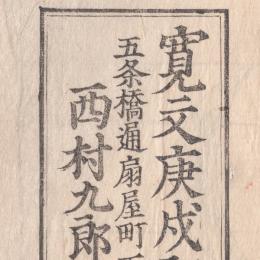 寛文庚戌
五条橋通扇屋町
西村九郎